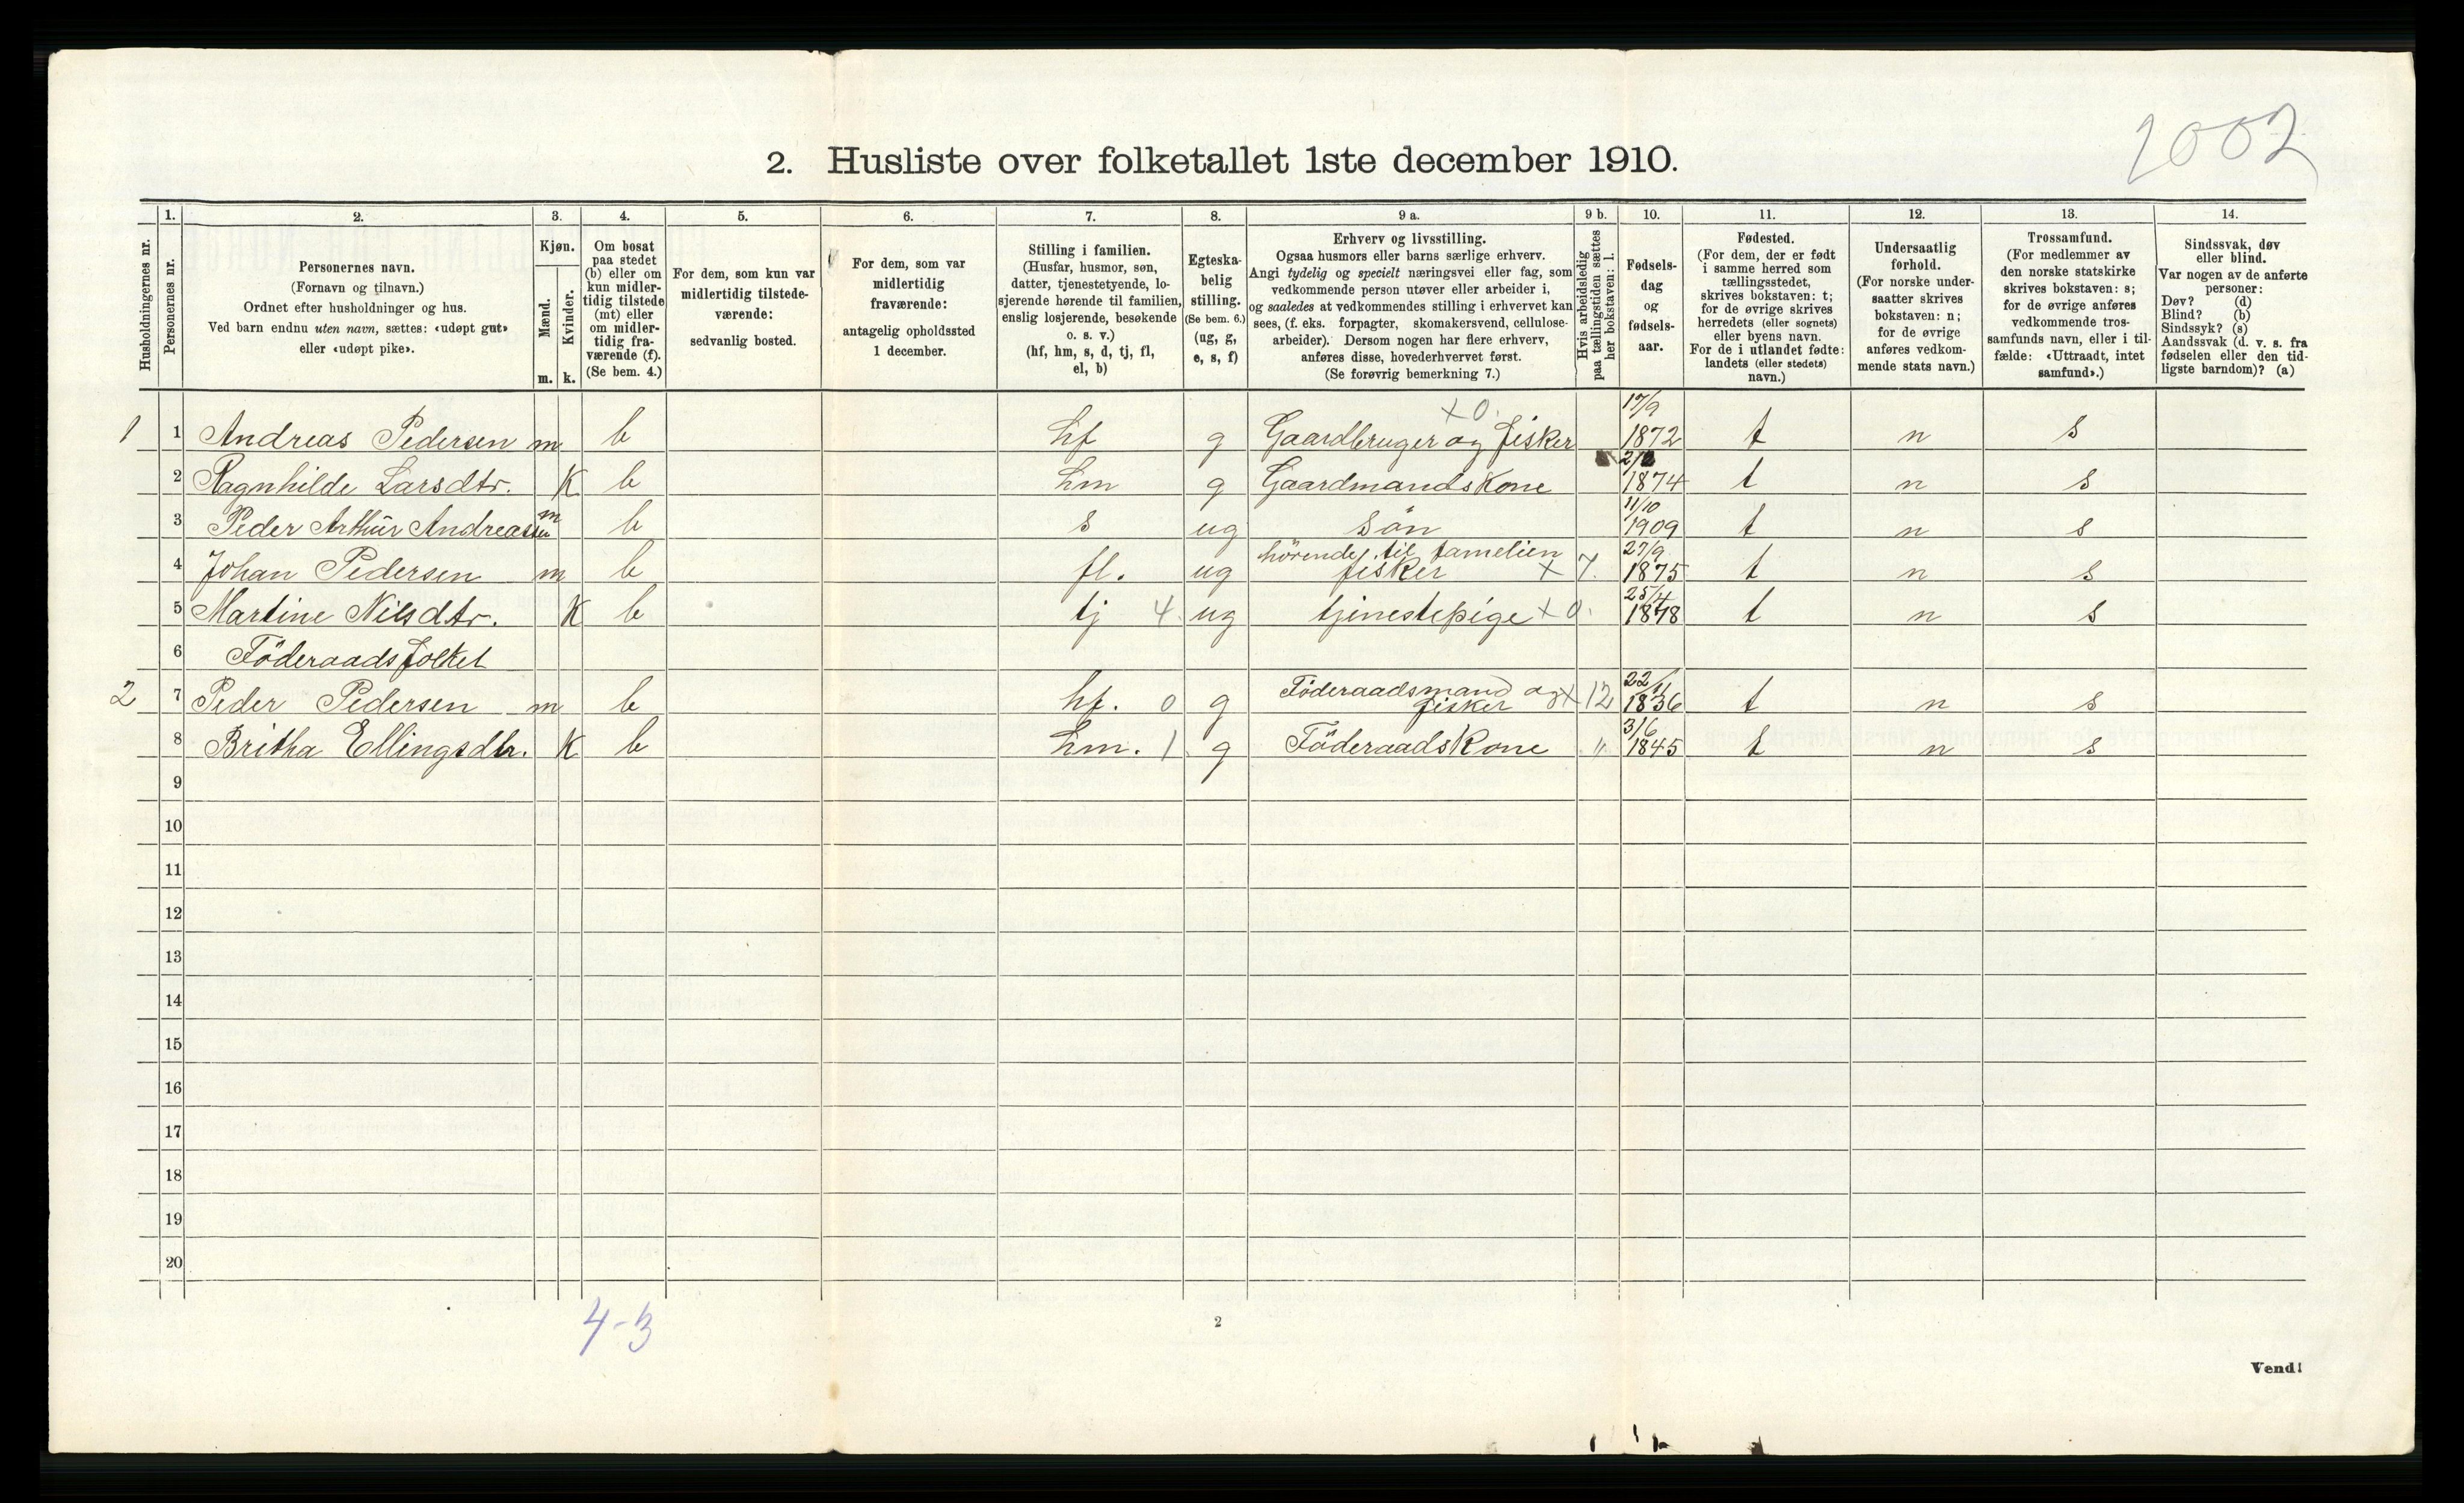 2002
2. Husliste over folketallet 1ste december 1910.
Husholdningernes nr.
1.
Personernes nr.
2.
Personernes navn.
(Fornavn og tilnavn.)
Ordnet efter husholdninger og hus.
Ved barn endnu uten navn, sættes: «udøpt gut»
eller «udøpt pike».
3.
Kjøn.
Mænd.
Kvinder.
m. k.
4.
Om bosat
paa stedet
(b) eller om
kun midler-
tidig tilstede
(mt) eller
om midler-
tidig fra-
værende (f).
(Se bem. 4.)
5.
For dem, som kun var
midlertidig tilstede-
værende:
sedvanlig bosted.
6.
For dem, som var
midlertidig
fraværende:
antagelig opholdssted
1 december.
7.
Stilling i familien.
(Husfar, husmor, søn,
datter, tjenestetyende, lo-
sjerende hørende til familien,
enslig losjerende, besøkende
o. s. v.)
(hf, hm, s, d, tj, fl,
el, b)
8.
Egteska-
belig
stilling.
(Se bem. 6.)
(ug, g,
e, s, f)
9 a.
Erhverv og livsstilling.
Ogsaa husmors eller barns særlige erhverv.
Angi tydelig og specielt næringsvei eller fag, som
vedkommende person utøver eller arbeider i,
og saaledes at vedkommendes stilling i erhvervet kan
sees, (f. eks. forpagter, skomakersvend, cellulose-
arbeider). Dersom nogen har flere erhverv,
anføres disse, hovederhvervet først.
(Se forøvrig bemerkning 7.)
9 b.
Hvis arbeidsledig
paa tællingstiden sættes
her bokstaven: l.
10.
Fødsels-
dag
og
fødsels-
aar.
11.
Fødested.
(For dem, der er født
i samme herred som
tællingsstedet,
skrives bokstaven: t;
for de øvrige skrives
herredets (eller sognets)
eller byens navn.
For de i utlandet fødte:
landets (eller stedets)
navn.)
12.
Undersaatlig
forhold.
(For norske under-
saatter skrives
bokstaven: n;
for de øvrige
anføres vedkom-
mende stats navn.)
13.
Trossamfund.
(For medlemmer av
den norske statskirke
skrives bokstaven: s;
for de øvrige anføres
vedkommende tros-
samfunds navn, eller i til-
fælde: «Uttraadt, intet
samfund».)
14.
Sindssvak, døv
eller blind.
Var nogen av de anførte
personer:
Døv? (d)
Blind? (b)
Sindssyk? (s)
Aandssvak (d. v. s. fra
fødselen eller den tid-
ligste barndom)? (a)
x 0. 17/9
1 1 Andreas Pedersen m b hf g Gaardbruger og fisker 1872 t n s
2 Ragnhilde Larsdtr. K b hm g Gaardmandskone 1874 t n s
11/10
3 Peder Arthur Andreassen m b s ug sön 1909 t n s
hörende til familien 27/9
4 Johan Pedersen m b fl. ug fisker x 7. 1875 t n s
25/4
5 Martine Nilsdtr. K b tj 4. ug tjinestepige x 0. t n s
6 Föderaadsfolket
Föderaadsmand og x 12 22/11
2 7 Peder Pedersen m b hf. 0 g fisker 1836 t n s
3/6
8 Britha Ellingsdtr. K b hm. 1 g Föderaadskone " 1845 t n s
9
10
11
12
13
14
15
16
17
18
19
20
4-3
2
Vend!